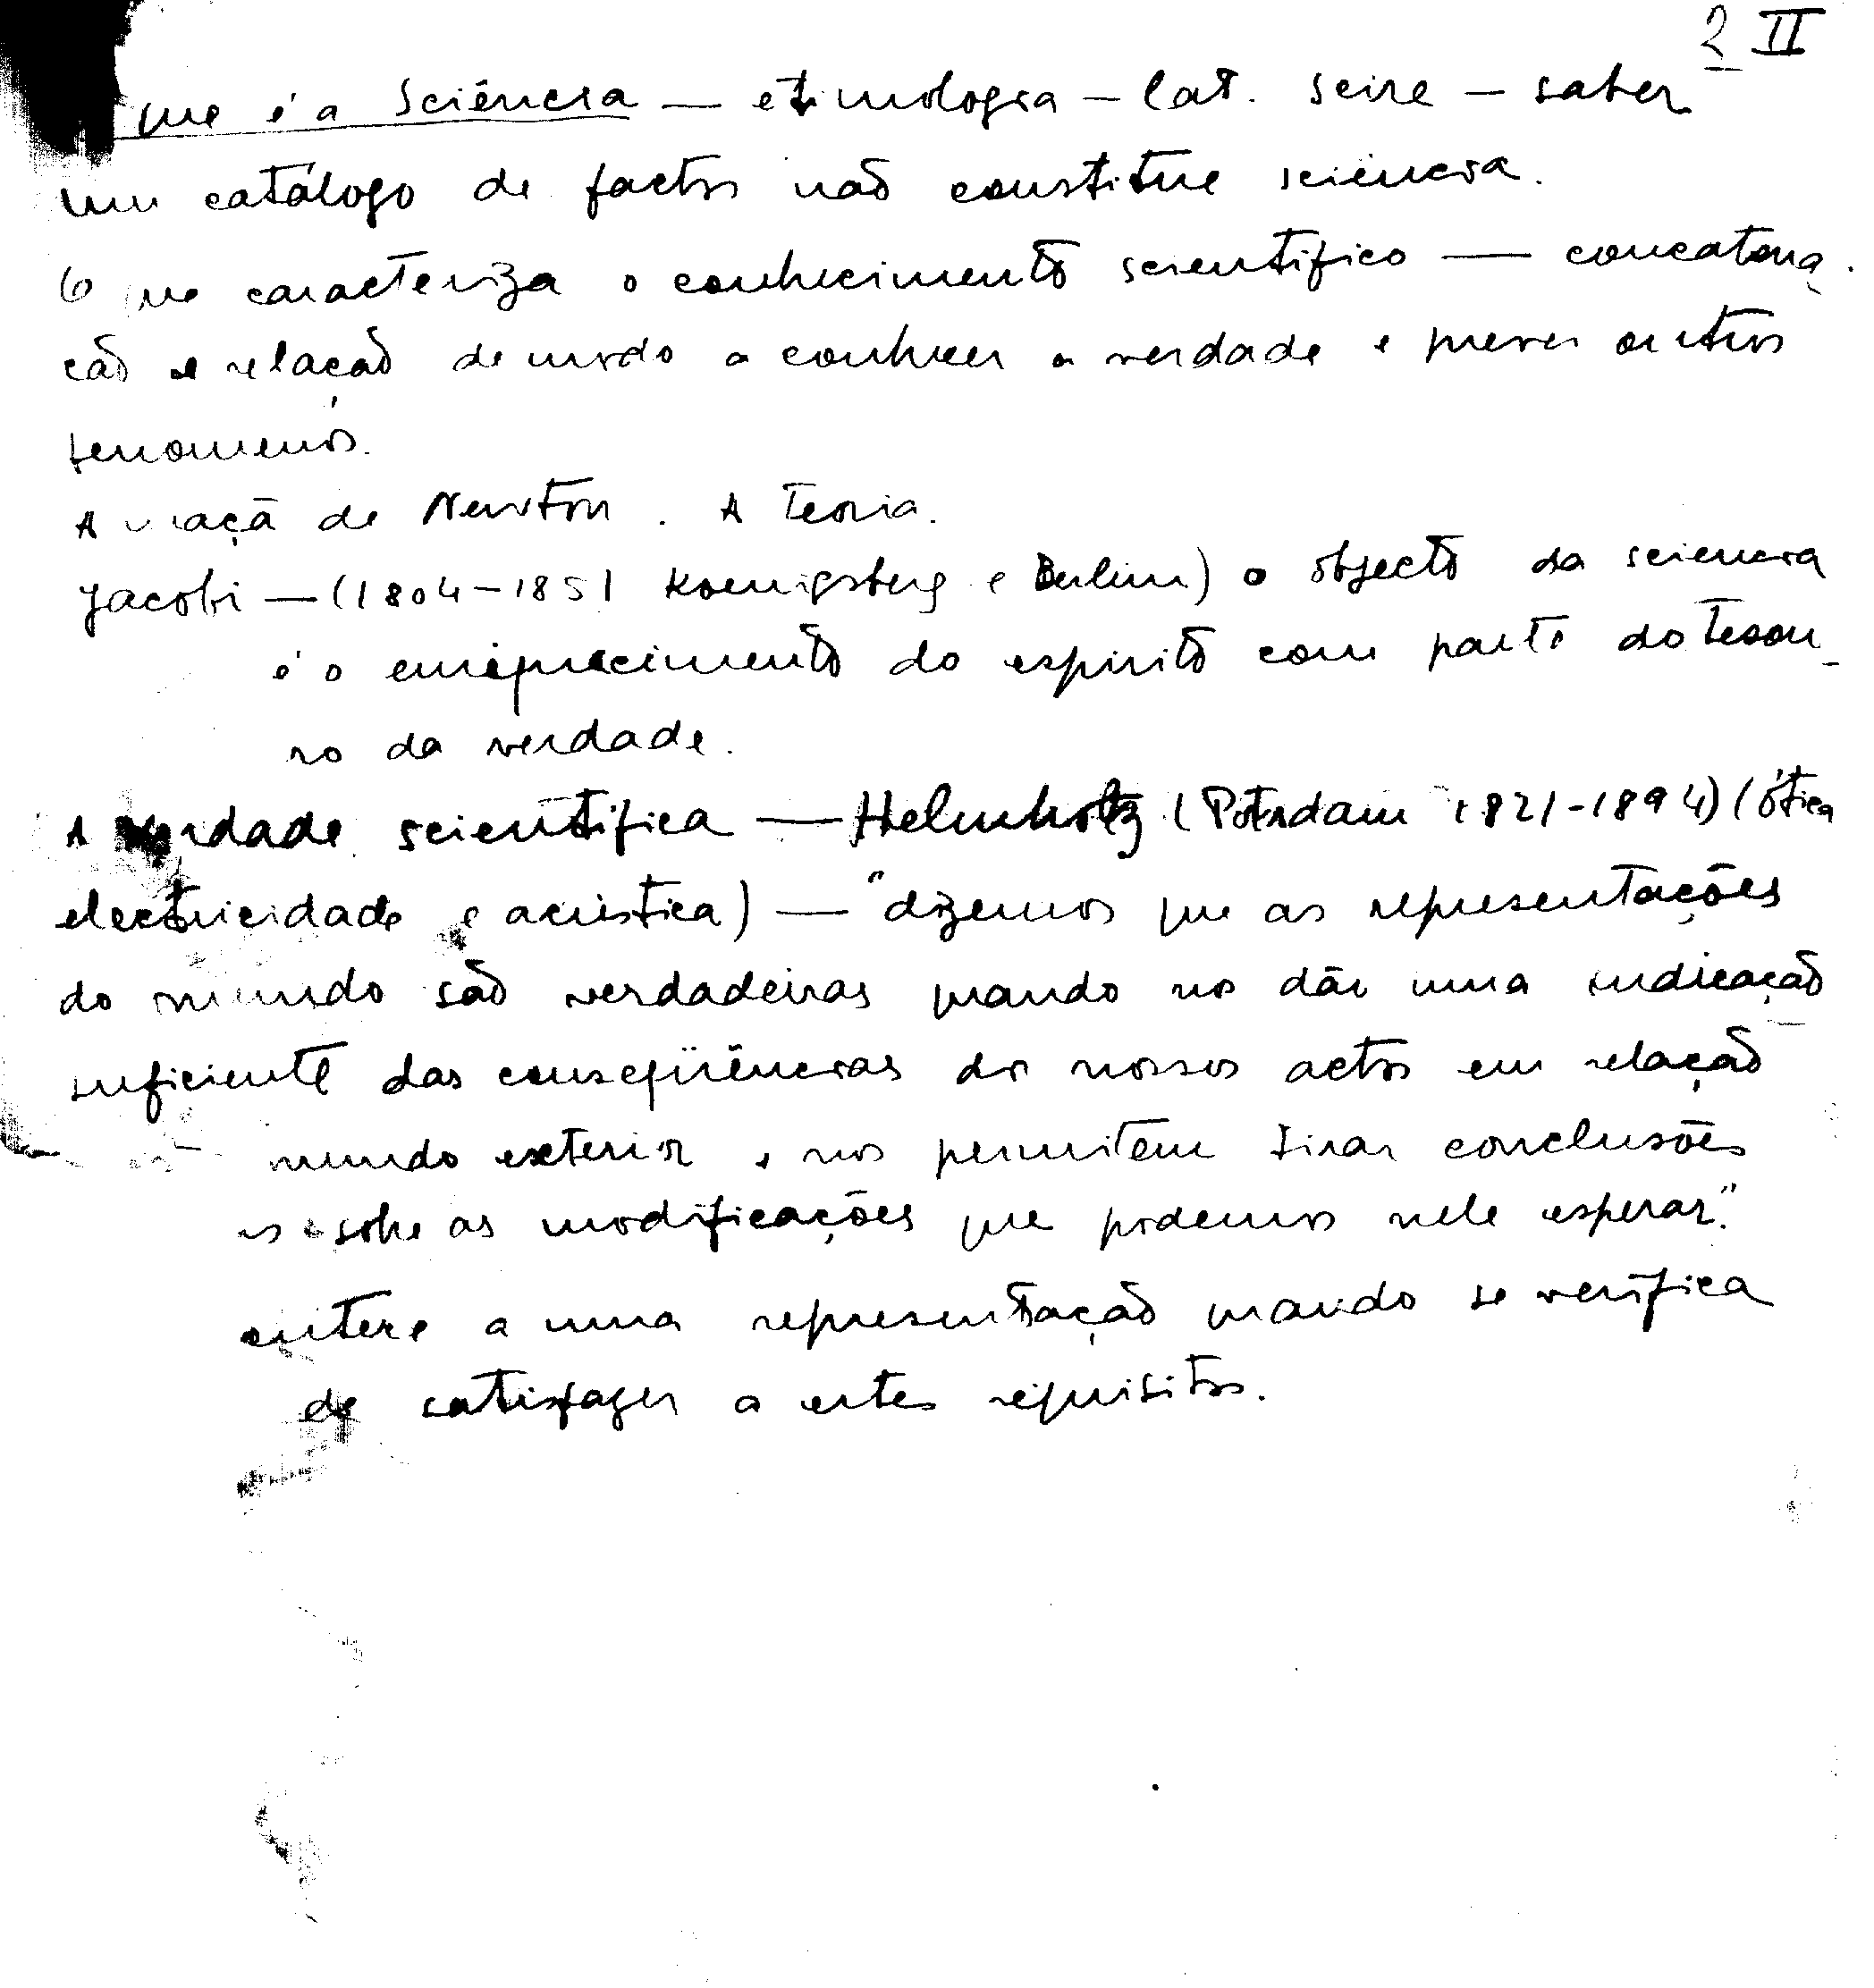 2 II
que é a Sciência — etimologia — lat. scire — saber
Um catálogo de factos não constitue sciência.
O que caracteriza o conhecimento scientifico — concatena-
ção e relação de modo a conhecer a verdade e prever outros
fenomenos.
A maçã de Newton. A Teoria.
Jacobi — (1804-1851 Koenigsberg e Berlim) o objecto da sciencia
é o enriquecimento do espirito com parte do tesou-
ro da verdade.
A verdade scientifica — Helmholtz (Potsdam 1821-1894) (ótica
electricidade e acústica) — "dizemos que as representações
do mundo são verdadeiras quando nos dão uma indicação
suficiente das conseqüências dos nossos actos em relação
mundo exterior e nos permitem tirar conclusões
sobre as modificações que podemos nele esperar."
a uma representação quando se verifica
de satisfazer a estes requisitos.